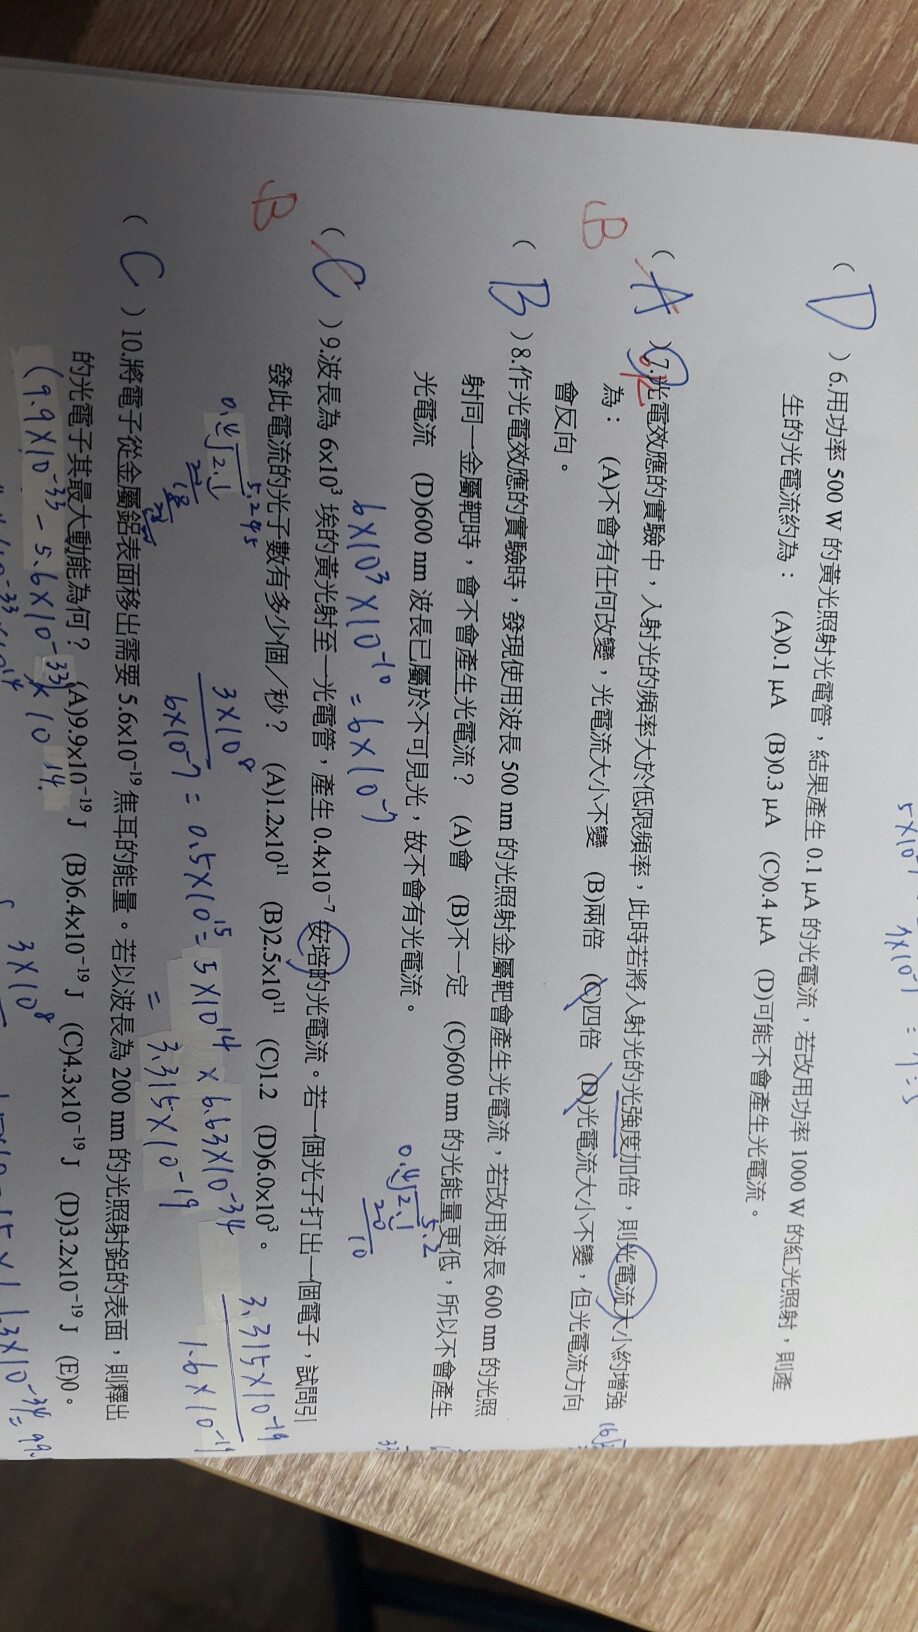 5×10⁻⁷
( D ) 6.用功率 500 W 的黃光照射光電管，結果產生 0.1 μA 的光電流，若改用功率 1000 W 的紅光照射，則產
生的光電流約為： (A)0.1 μA (B)0.3 μA (C)0.4 μA (D)可能不會產生光電流。
B
( A ) 7.光電效應的實驗中，入射光的頻率大於低限頻率，此時若將入射光的光強度加倍，則光電流大小約增強
為： (A)不會有任何改變，光電流大小不變 (B)兩倍 (C)四倍 (D)光電流大小不變，但光電流方向
會反向。
( B ) 8.作光電效應的實驗時，發現使用波長 500 nm 的光照射金屬靶會產生光電流，若改用波長 600 nm 的光照
射同一金屬靶時，會不會產生光電流？ (A)會 (B)不一定 (C)600 nm 的光能量更低，所以不會產生
光電流 (D)600 nm 波長已屬於不可見光，故不會有光電流。
5.2
0.4√2.1
20
10
6×10³×10⁻¹⁰=6×10⁻⁷
B
( C ) 9.波長為 6x10³ 埃的黃光射至一光電管，產生 0.4x10⁻⁷ 安培的光電流。若一個光子打出一個電子，試問引
發此電流的光子數有多少個／秒？ (A)1.2x10¹¹ (B)2.5x10¹¹ (C)1.2 (D)6.0x10³。
5.245
0.4√2.1
3×10⁸
6×10⁻⁷ = 0.5×10¹⁵=5×10¹⁴ × 6.63×10⁻³⁴
= 3.315×10⁻¹⁹
3.315×10⁻¹⁹
1.6×10⁻¹⁹
( C ) 10.將電子從金屬鋁表面移出需要 5.6x10⁻¹⁹ 焦耳的能量。若以波長為 200 nm 的光照射鋁的表面，則釋出
的光電子其最大動能為何？ (A)9.9x10⁻¹⁹ J (B)6.4x10⁻¹⁹ J (C)4.3x10⁻¹⁹ J (D)3.2x10⁻¹⁹ J (E)0。
(9.9×10⁻³³ - 5.6×10⁻³³) × 10¹⁴
3×10⁸